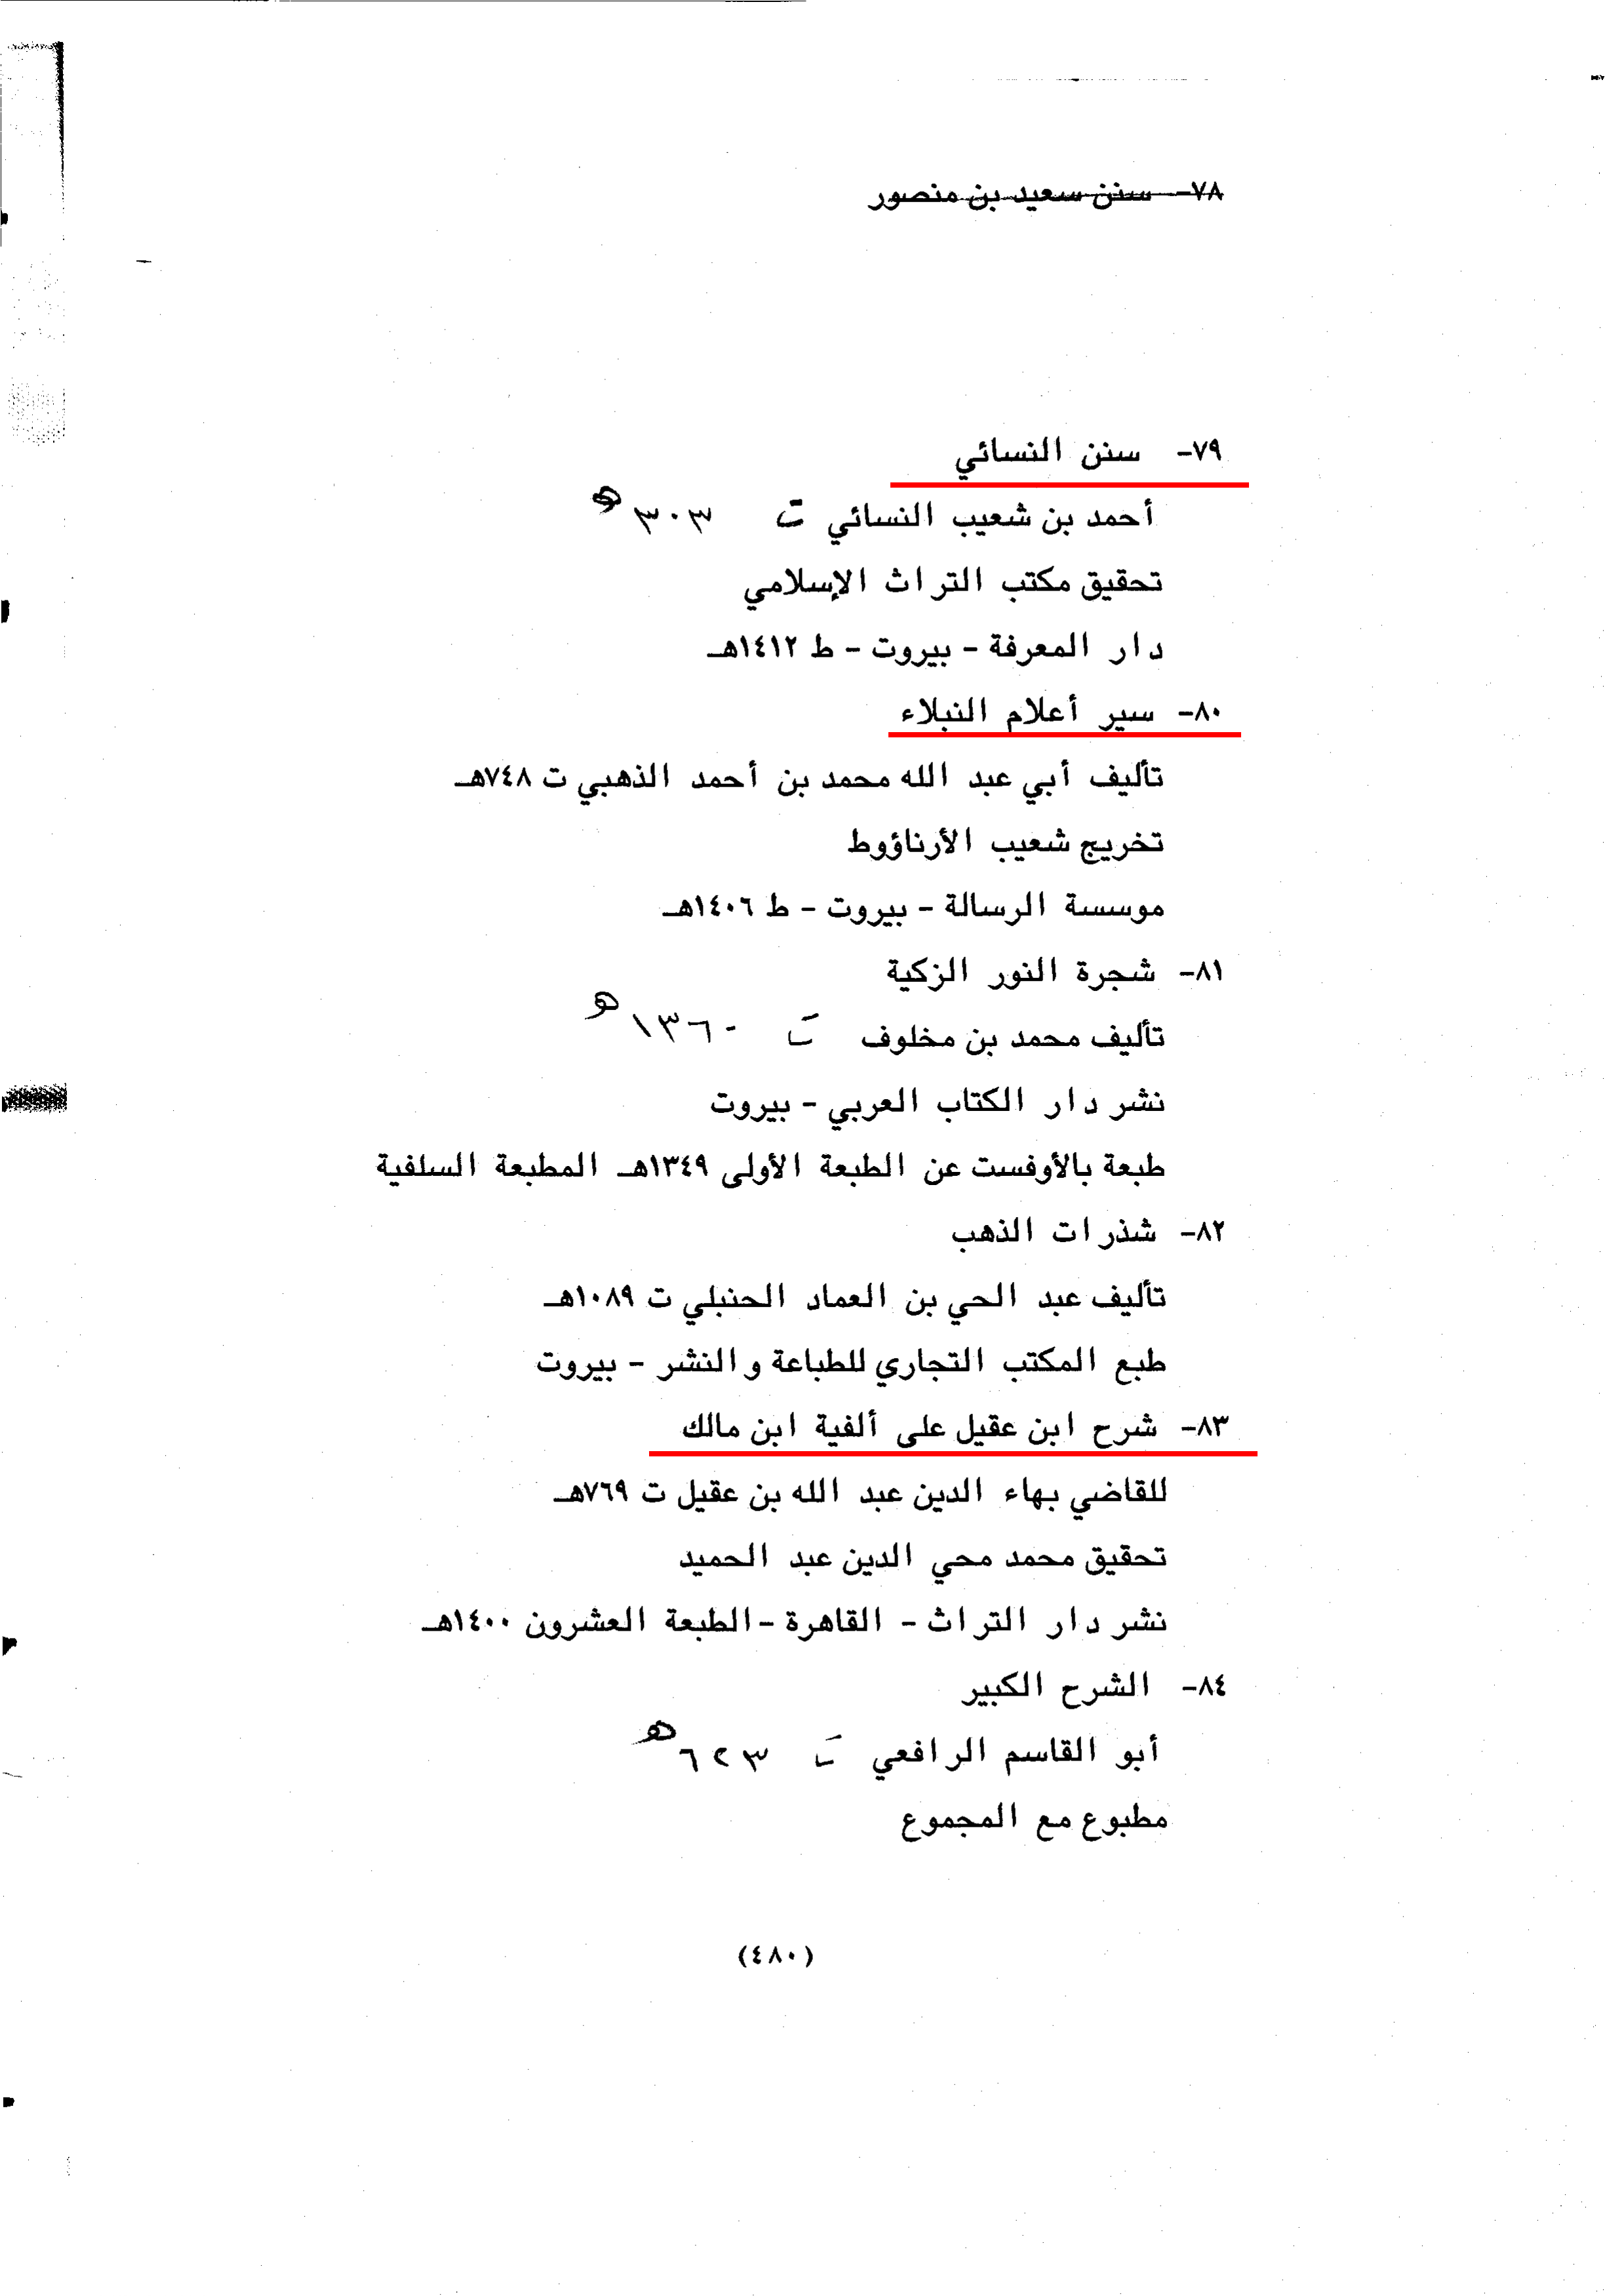 ٧٨- سنن سعيد بن منصور
٧٩- سنن النسائي
أحمد بن شعيب النسائي ت ٣٠٣ هـ
تحقيق مكتب التراث الإسلامي
دار المعرفة - بيروت - ط ١٤١٢هـ
٨٠- سير أعلام النبلاء
تأليف أبي عبد الله محمد بن أحمد الذهبي ت ٧٤٨هـ
تخريج شعيب الأرناؤوط
موسسة الرسالة - بيروت - ط ١٤٠٦هـ
٨١- شجرة النور الزكية
تأليف محمد بن مخلوف ت ١٣٦٠ هـ
نشر دار الكتاب العربي - بيروت
طبعة بالأوفست عن الطبعة الأولى ١٣٤٩هـ المطبعة السلفية
٨٢- شذرات الذهب
تأليف عبد الحي بن العماد الحنبلي ت ١٠٨٩هـ
طبع المكتب التجاري للطباعة والنشر - بيروت
٨٣- شرح ابن عقيل على ألفية ابن مالك
للقاضي بهاء الدين عبد الله بن عقيل ت ٧٦٩هـ
تحقيق محمد محي الدين عبد الحميد
نشر دار التراث - القاهرة -الطبعة العشرون ١٤٠٠هـ
٨٤- الشرح الكبير
أبو القاسم الرافعي ت ٦٢٣ هـ
مطبوع مع المجموع
(٤٨٠)